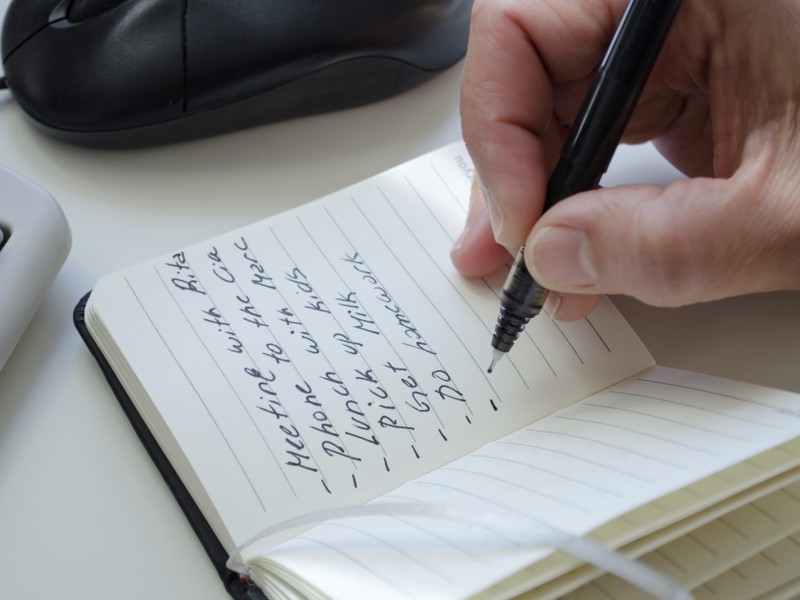 - Meeting with Rita
- Phone to the Cia
- Lunch with Marc
- Pick up kids
- Get Milk
- Do homework
-